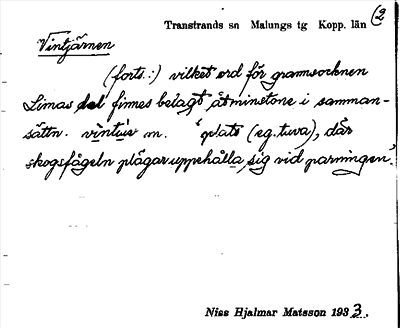 Transtrands sn Malungs tg Kopp. län (2
Vintjärnen
(forts.:) vilket ord för grannsocknen
Limas del finnes belagt åtminstone i samman-
sättn. m. "plats (eg. tuva), där
skogsfågeln plägar uppehålla sig vid parningen".
Nies Hjalmar Matsson 1933.